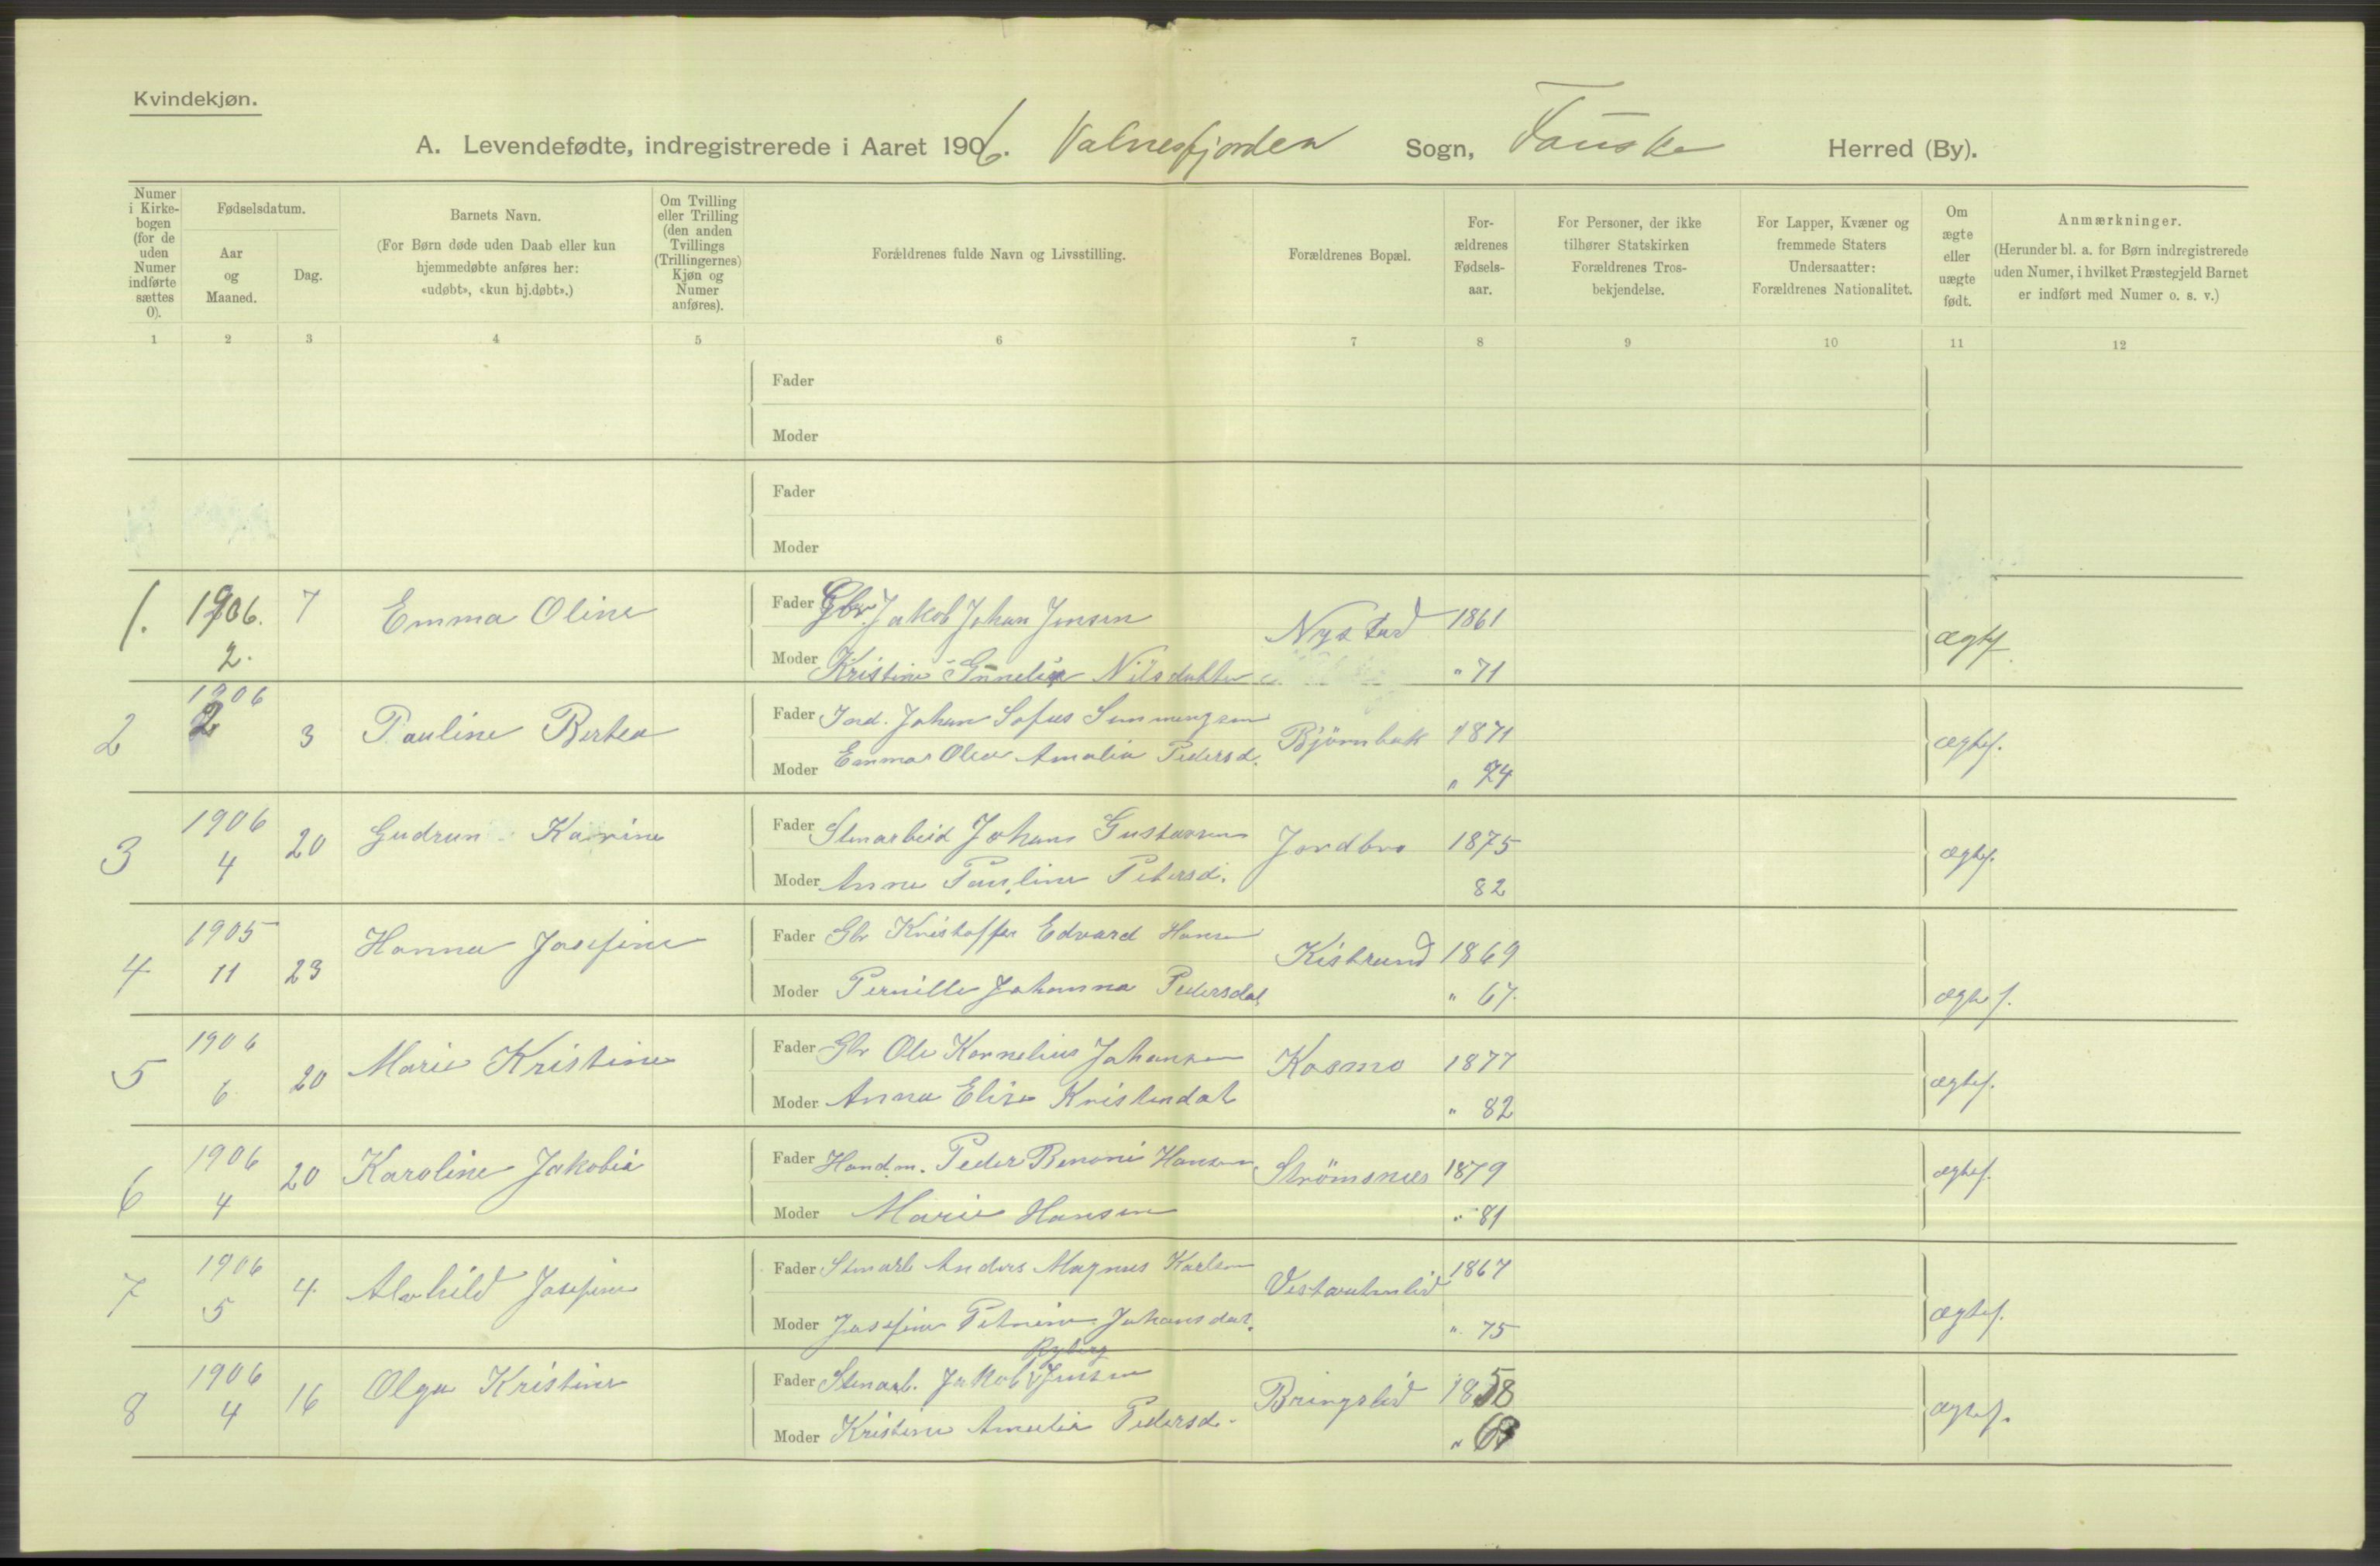 Kvindekjøn.
A. Levendefødte, indregistrerede i Aaret 1906. Valnesfjorden Sogn, Fauske Herred (By).
Numer i Kirkebogen (for de uden Numer indførte sættes 0).
Fødselsdatum.
Aar og Maaned.
Dag.
Barnets Navn.
(For Børn døde uden Daab eller kun hjemmedøbte anføres her: «udøbt», «kun hj.døbt».)
Om Tvilling eller Trilling (den anden Tvillings (Trillingernes) Kjøn og Numer anføres).
Forældrenes fulde Navn og Livsstilling.
Forældrenes Bopæl.
Forældrenes Fødselsaar.
For Personer, der ikke tilhører Statskirken Forældrenes Trosbekjendelse.
For Lapper, Kvæner og fremmede Staters Undersaatter: Forældrenes Nationalitet.
Om ægte eller uægte født.
Anmærkninger.
(Herunder bl. a. for Børn indregistrerede uden Numer, i hvilket Præstegjeld Barnet er indført med Numer o. s. v.)
1 2 3 4 5 6 7 8 9 10 11 12
Fader
Moder
Fader
Moder
1. 1906. 7 Emma Oline Fader Gbr. Jakob Johan Jensen Nystad 1861 ægtef.
2. Moder Kristine Nilsdatter " 71
2 1906 3 Pauline Bertea Fader Ind. Johan Sofus Simmengsen Bjørnbak 1871 ægtef.
2 Moder Emma Olea Amalia Pedersd. " 74
3 1906 20 Gudrun Karine Fader Stenarbeid Johan Gustavsen Jordbro 1875 ægtef.
4 Moder Anna Pauline Petersd. 82
4 1905 23 Hanna Josefine Fader Gbr Kristoffer Edvard Hansen Kistrand 1869 ægtef.
11 Moder Pernille Johanna Pedersdat. " 67.
5 1906 20 Marie Kristine Fader Gbr Ole Kornelius Johansen Kosmo 1877 ægtef.
6 Moder Anna Elise Kristendat " 82
6 1906 20 Karoline Jakobia Fader Handm. Peder Benoni Hansen Strömsnes 1879 ægtef.
4 Moder Marie Hansen " 81
7 1906 4. Alvhild Josefine Fader Stenarb Anders Magnus Karlsen 1867 ægtef.
5 Moder Josefine Petrine Johansdat. " 75
Ryberg
8 1906 16 Olga Kristine Fader Stenarb. Jakob Jensen Bringslid 1858 ægtef.
4 Moder Kristine Amalia Pedersd. " 63